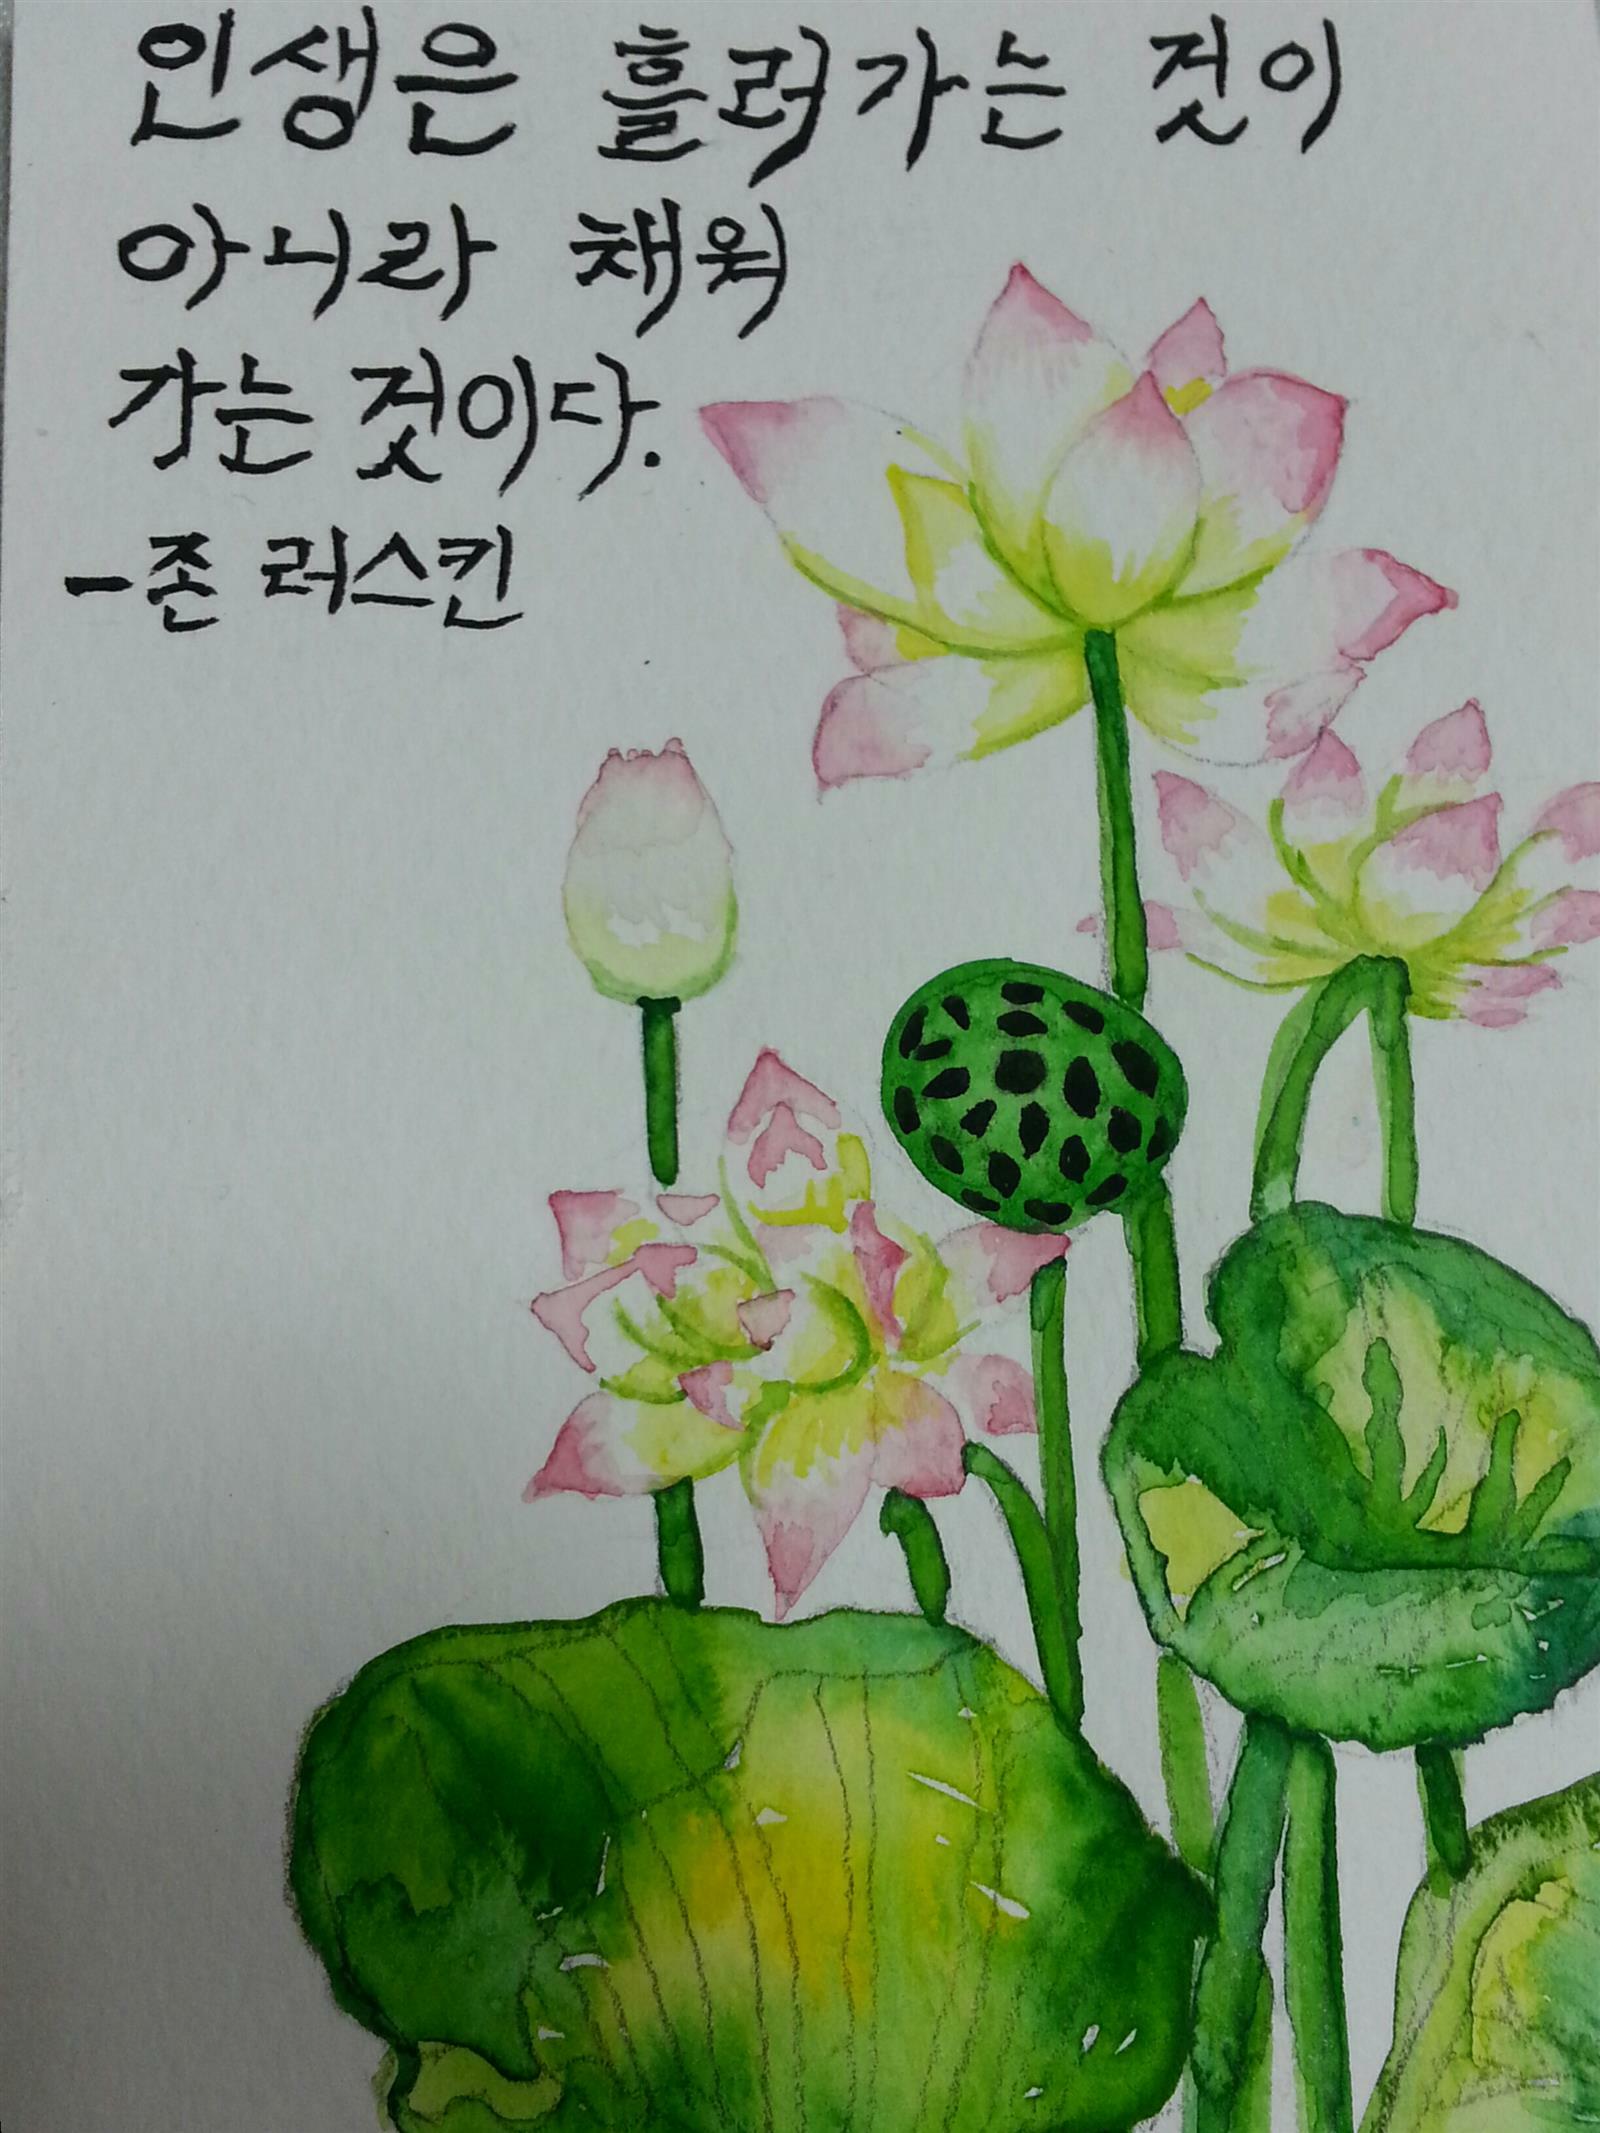 인생은 흘러가는 것이
아니라 채워
가는 것이다.
-존 러스킨